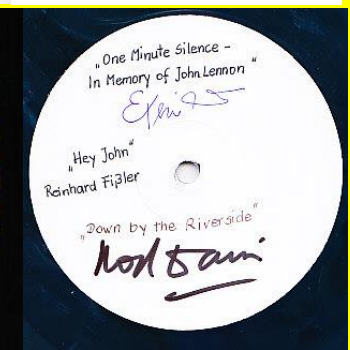 „One Minute Silence –
In Memory of John Lennon“
„Hey John“
Reinhard Fißler
„Down by the Riverside“
Rod Davis